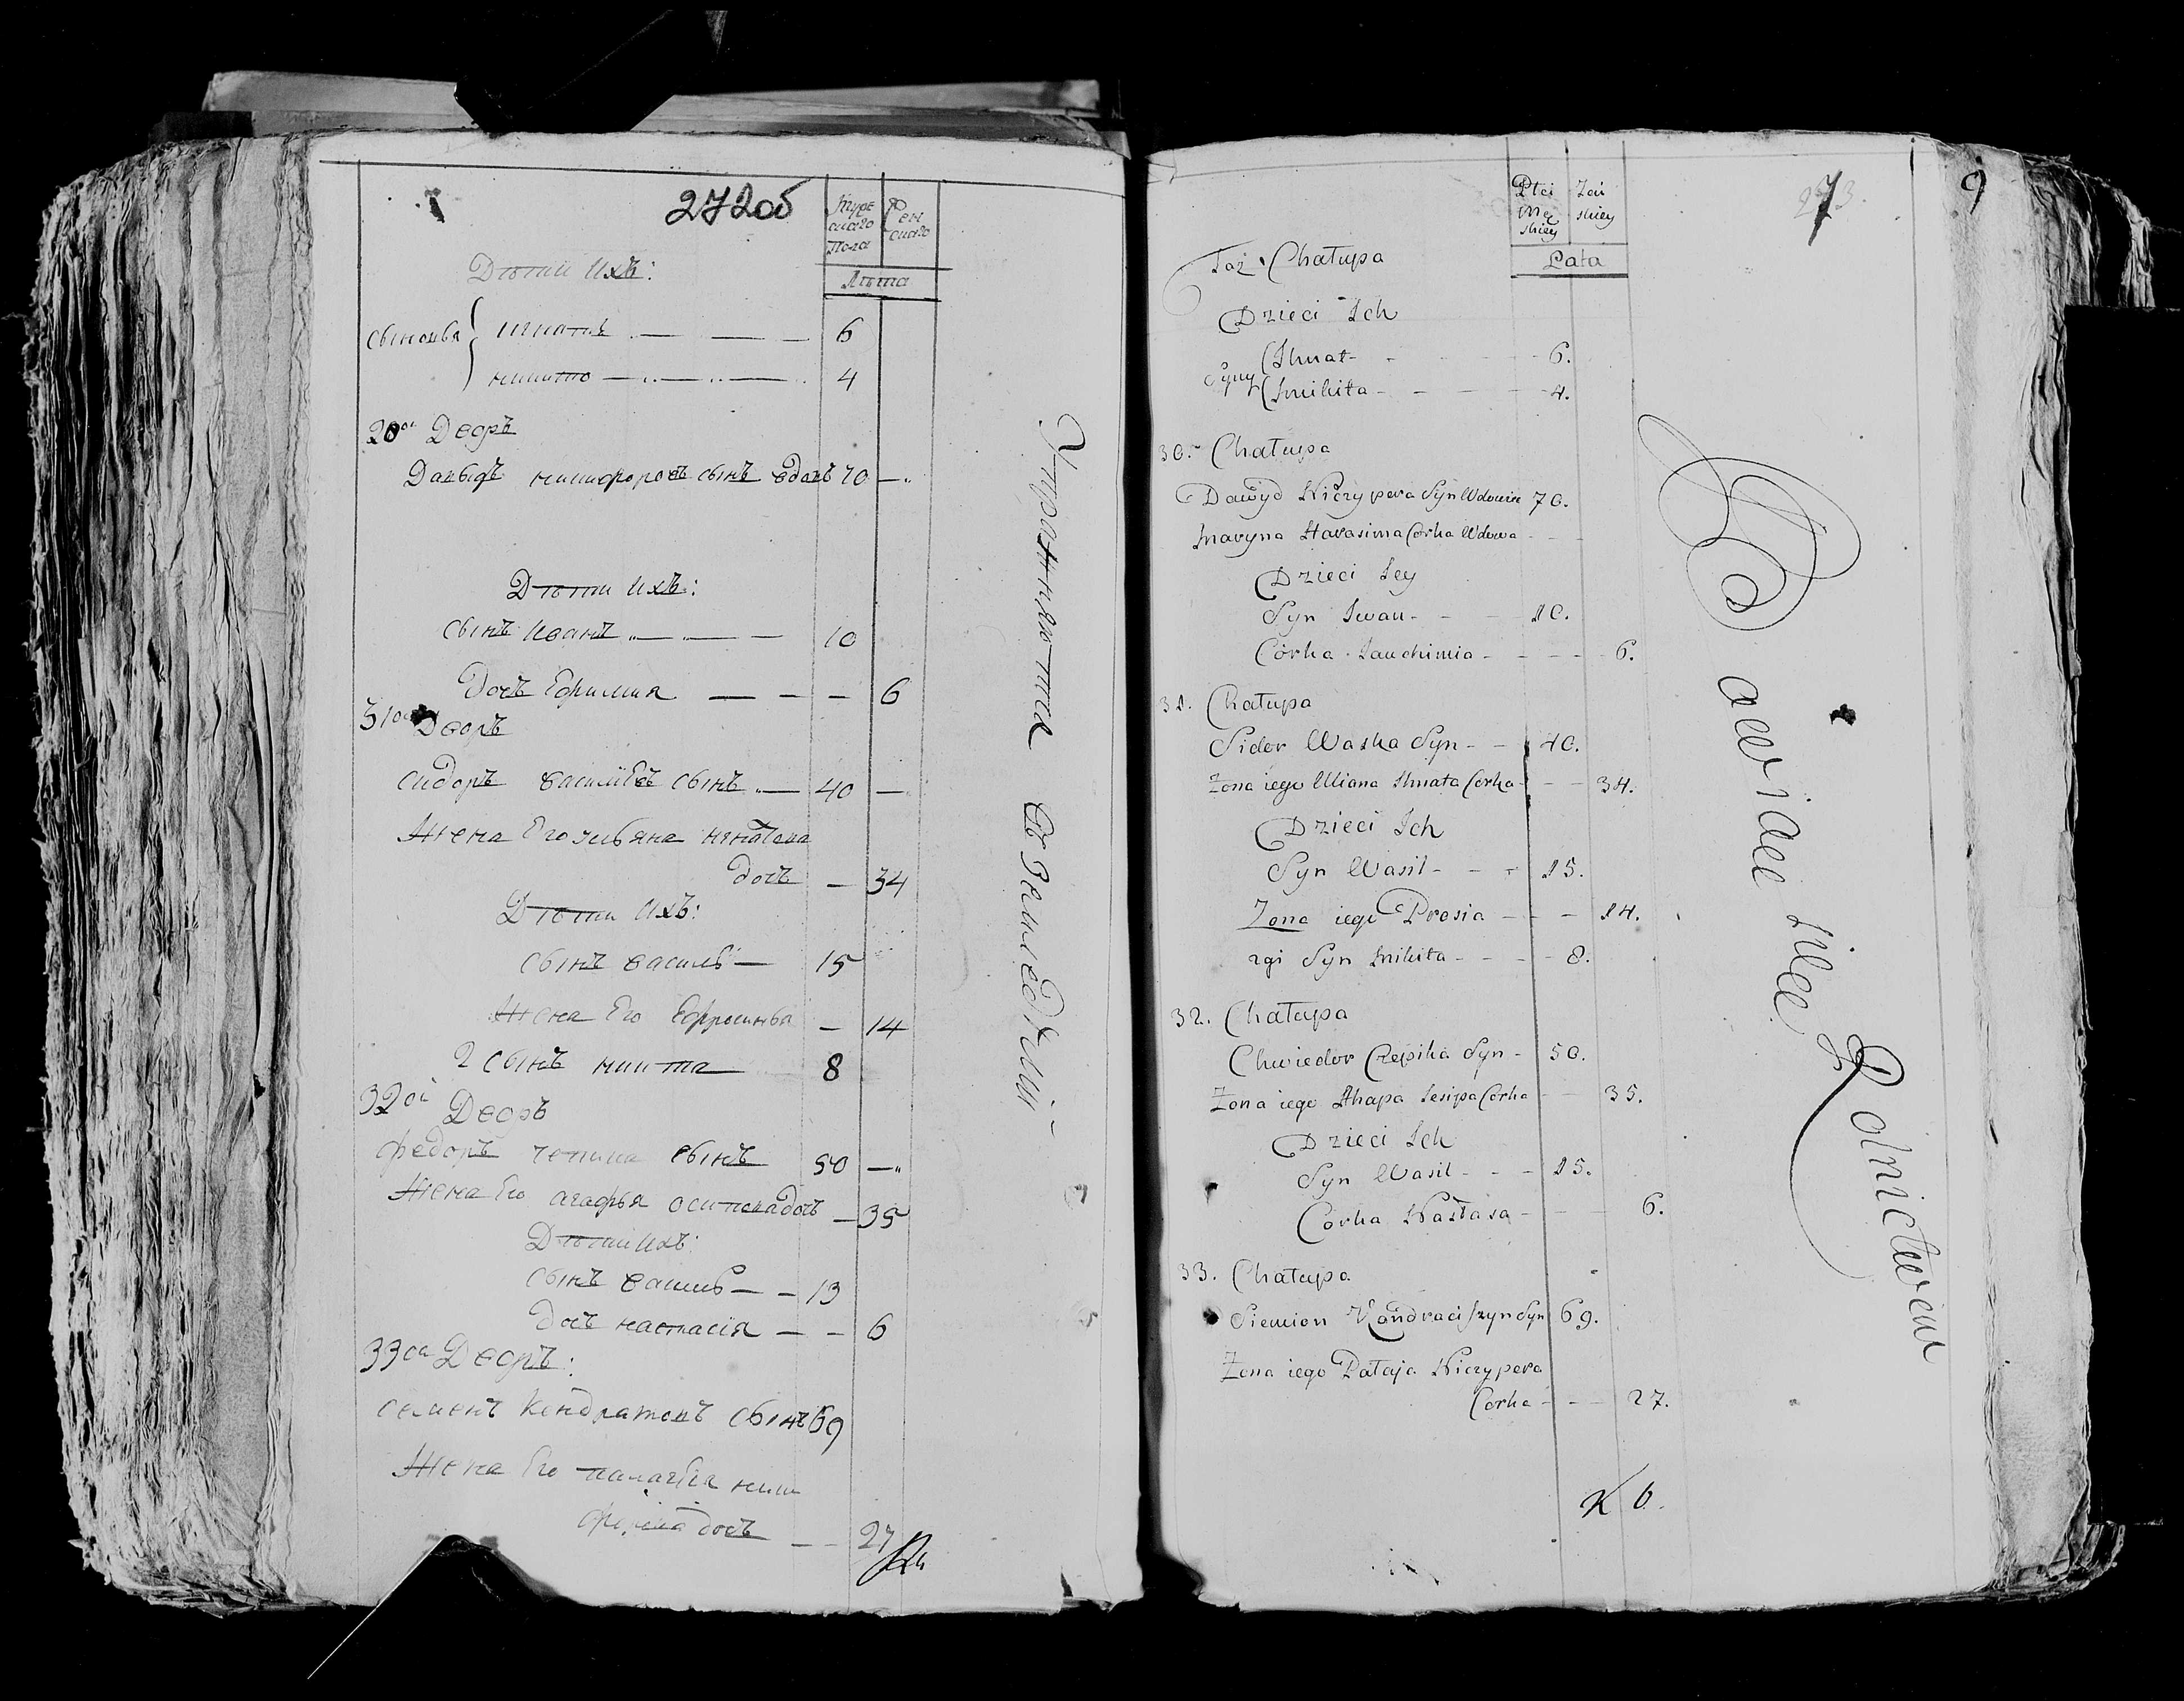 272об
Мужескаго Пола
Женскаго
Лѣта
Дѣти Ихъ:
сыновья игнатъ 6
микита 4
30ои Дворъ
Давыдъ никифоровъ сынъ вдовъ 70 —
Дѣти Ихъ:
сынъ Иванъ 10
дочь Ефимия — 6
31ои Дворъ
сидоръ васильевъ сынъ 40 —
Жена Его ульяна игнатова
дочь — 34
Дѣти Ихъ:
сынъ василь — 15
Жена Его Ефросинья — 14
2 сынъ микита 8
32ои Дворъ
федоръ чепика сынъ 50 —
Жена Его агафья осипова дочь — 35
Дѣти Ихъ:
сынъ василь — — 13
дочь настасія — — 6
33ои Дворъ:
семенъ кондратовъ сынъ 69
Жена Его палагея ники
форова дочь — 27
Упражняются въ Земледѣлии
9
273.
7
Płci Męskiey
Żeńskiey
Lata
Taż Chałupa
Dzieci Ich
Syny Ihnat - 6.
Mikita - 4.
30. Chałupa
Dawyd Niczypera Syn Wdowiec 70.
Maryna Harasima Corka Wdowa - -
Dzieci Jey
Syn Iwan - 10.
Córka Jauchimia - 6.
31. Chałupa
Sidor Waska Syn - 40.
Żona iego Uliana Ihnata Corka - 34.
Dzieci Ich
Syn Wasil - 15.
Żona iego Prosia - 14.
2gi Syn Mikita - 8.
32. Chałupa
Chwiedor Czepika Syn - 50.
Żona iego Ahapa Jesipa Corka - 35.
Dzieci Ich
Syn Wasil - 15.
Córka Nastasa - 6.
33. Chałupa
Siemion Kondraciszyn Syn 69.
Żona iego Pałaja Niczypera
Corka - 27.
Bawiące się Rolnictwem